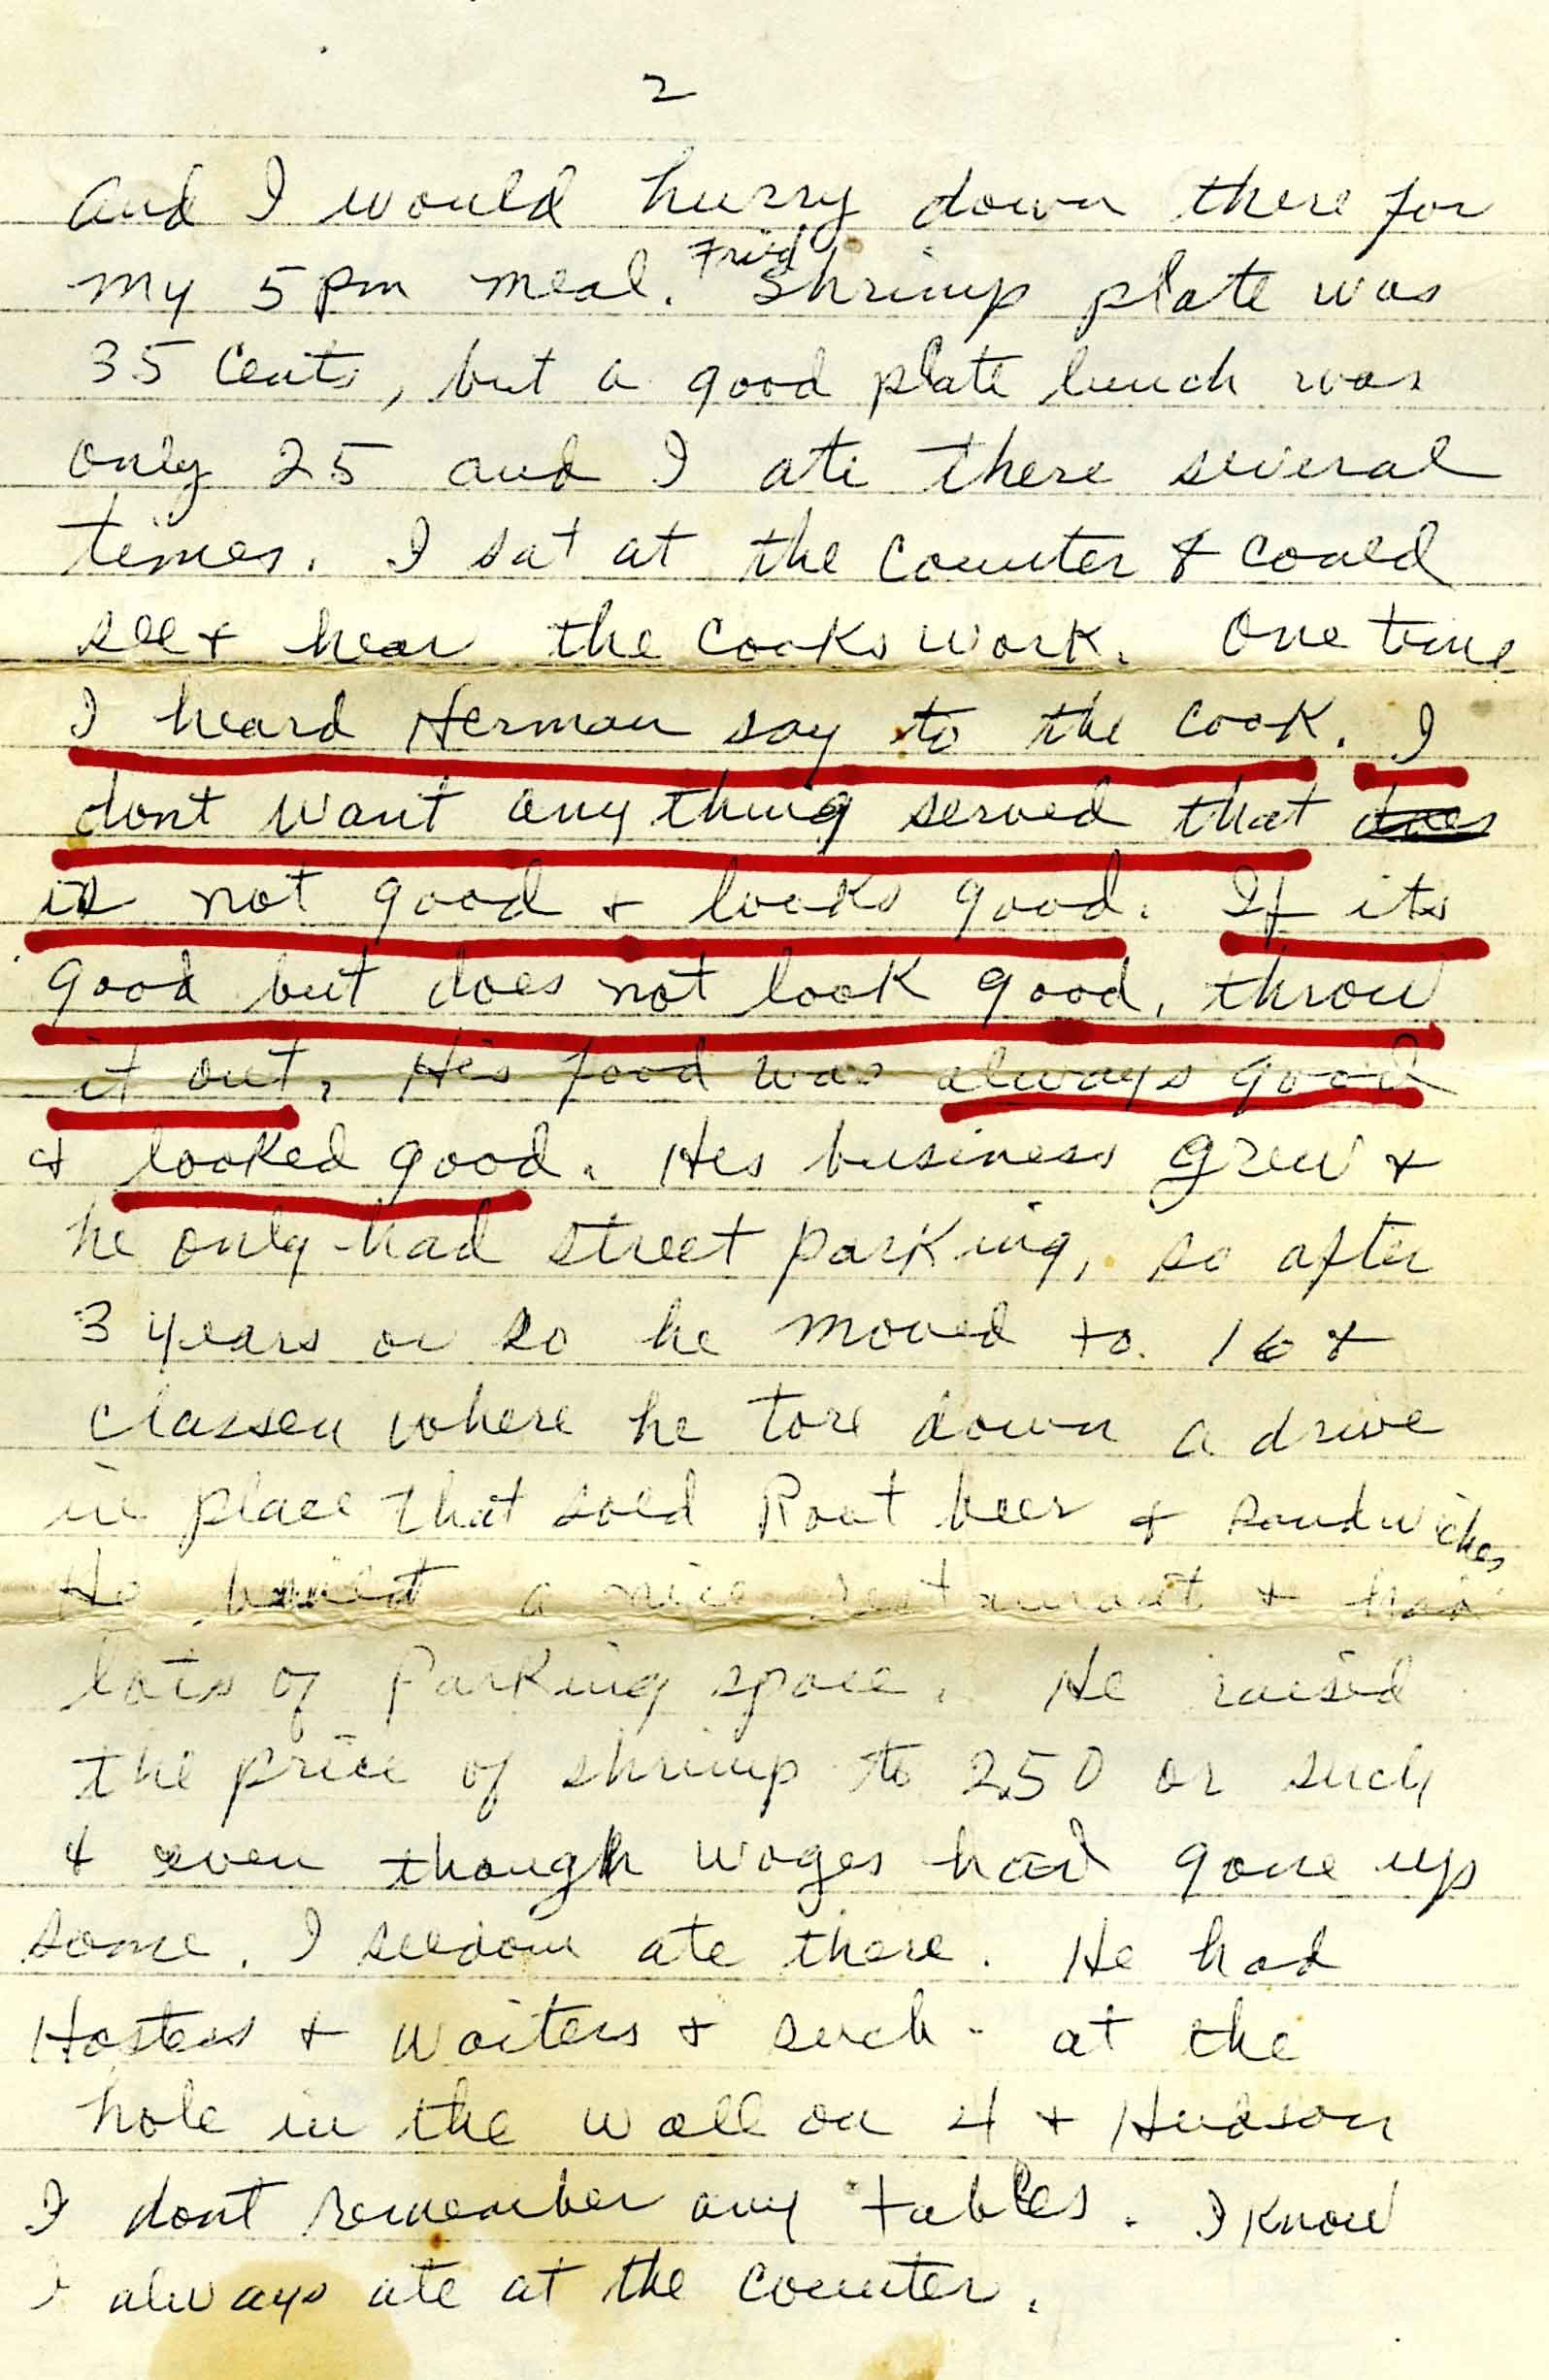 2
and I would hurry down there for
my 5 pm meal. Fried Shrimp plate was
35 Cents, but a good plate lunch was
only 25 and I ate there several
times. I sat at the Counter & could
see & hear the Cooks work. One time
I heard Herman say to the Cook. I
dont want any thing served that does
is not good & looks good. If its
good but does not look good, throw
it out. His food was always good
& looked good. His business grew &
he only had street parking, so after
3 years or so he moved to 16 &
Classen where he tore down a drive
in place that sold Root beer & sandwiches
He a nice restaurant & had
lots of Parking space. He raised
the price of shrimp to 2.50 or such
& even though wages had gone up
some. I seldom ate there. He had
Hostess & Waiters & such - at the
hole in the wall on 4 & Hudson
I dont remember any tables. I know
I always ate at the counter.